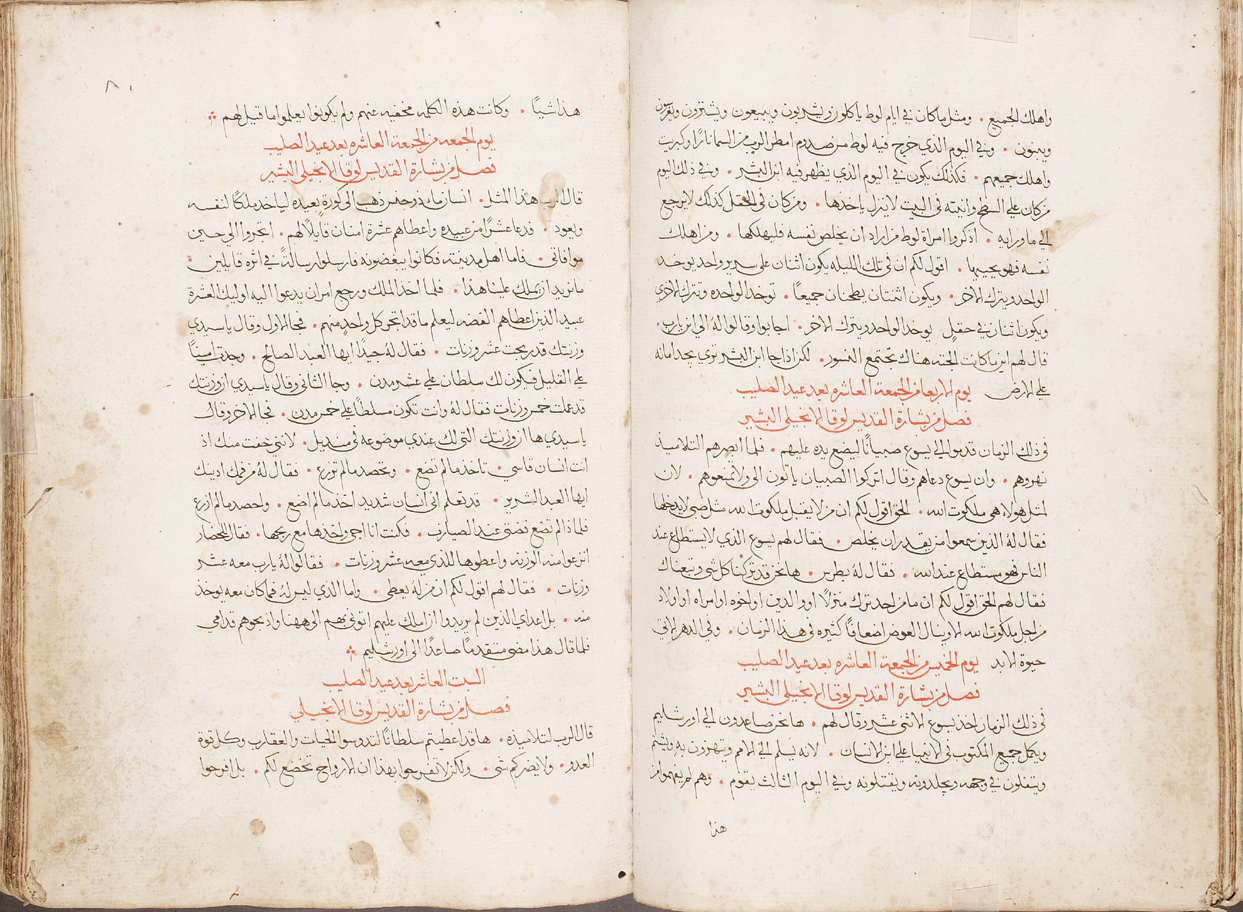 واهلك الجميع • ومثل ما كان في ايام لوط ياكلون ويشربون ويبيعون ويشترون ويغرسون
ويبنون • وفي اليوم الذي خرج فيه لوط من صدوم امطر الرب من السما نارًا وكبريت
واهلك جميعهم • فكذلك يكون في اليوم الذي يظهر فيه ابن البشر • وفي ذلك اليوم
من كان على السطح وانيته في البيت لا ينزل ياخذها • ومن كان في الحقل كذلك لا يرجع
الى ما ورايه • اذكروا امراة لوط من اراد ان يخلص نفسه فليهلكها • ومن اهلك
نفسه فهو يحييها • اقول لكم ان في تلك الليله يكون اثنان على سرير واحد يوخذ
الواحد ويترك الاخر • ويكون اثنتان يطحنان جميعًا • توخذ الواحده وتترك الاخرى
ويكون اثنان في حقلٍ يوخذ الواحد ويترك الاخر • اجابوا وقالوا له الى اين يارب •
قال لهم اين كانت الجثه هناك تجتمع النسور • لكن اذا جا ابن البشر ترى يجد امانه
على الارض يوم الاربعا من الجمعة العاشره بعد عيد الصليب
فصل من بشارة القديس لوقا الانجيلي البشير
في ذلك الزمان قدموا الى يسوع صبيانًا ليضع يده عليهم • فلما ابصرهم التلاميذ
نهروهم • وان يسوع دعاهم وقال اتركوا الصبيان ياتون الي ولا تمنعوهم • لان
لمثل هولاء هي ملكوت الله • الحق اقول لكم ان من لا يقبل ملكوت الله مثل صبي لا يدخلها
فقال له الذين سمعوا من يقدر ان يخلص • فقال لهم يسوع الذي لا يستطاع عند
الناس فهو مستطاع عند الله • فقال له بطرس • ها نحن قد تركنا كل شي وتبعناك
فقال لهم الحق اقول لكم ان ما من احد ترك منزلًا او والدين او اخوه او امراه او اولاد
من اجل ملكوت الله الا وينال العوض اضعافًا كثيره في هذا الزمان • وفي الدهر الاتي
حيوة الابد يوم الخميس من الجمعة العاشره بعد عيد الصليب
فصل من بشارة القديس لوقا الانجيلي البشير
في ذلك الزمان اخذ يسوع الاثني عشر وقال لهم • ها نحن صاعدون الى اورشليم
ويكمل جميع المكتوب في الانبيا على ابن الانسان • لانه يسلم الى الامم ويتهزون به ويشتم
ويتفلون في وجهه ويجلدونه ويقتلونه وفي اليوم الثالث يقوم • وهم لم يفهموا من
هذا
٨٠
هذا شيًا • وكانت هذه الكلمه مخفيه عنهم ولم يكونوا يعلموا ما قيل لهم
يوم الجمعه من الجمعة العاشره بعد عيد الصليب
فصل من بشارة القديس لوقا الانجيلي البشير
قال الرب هذا المثل • انسان ماك ذو جنس ذهب الى كورةٍ بعيده لياخذ ملكًا لنفسه
ويعود • فدعا عشرًا من عبيده واعطاهم عشرة امنان قايلًا لهم • اتجروا الى حين
موافاتي • فاما اهل مدينته فكانوا يبغضونه فارسلوا رسالةً في اثره قايلين •
ما نريد ان يملك علينا هذا • فلما اخذ الملك ورجع امر ان يدعوا اليه اوليك العشرة
عبيد الذين اعطاهم الفضه ليعلم ما قد اتجر كل واحدٍ منهم • فجا الاول وقال ياسيدي
وزنتك قد ربحت عشر وزنات • فقال له جيدًا ايها العبد الصالح • وجدت امينًا
على القليل فيكون لك سلطان على عشر مدن • وجا الثاني وقال ياسيدي ان وزنتك
قد عملت خمس وزنات فقال له وانت تكون مسلطًا على خمس مدن • فجا الاخر وقال
ياسيدي ها ان وزنتك التي لك عندي موضوعه في منديل • لانني خفت منك اذ
انت انسان قاسي • تاخذ ما لم تضع • وتحصد ما لم تزرع • فقال له من فمك ادينك
ايها العبد الشرير • قد تعلم اني انسان شديد اخذ ما لم اضع • واحصد ما لم ازرع
فلماذا لم تضع فضتي عند الصيارف • فكنت انا اجي واخذها مع ربحها • فقال للحضار
انزعوا منه الوزنه واعطوها للذي معه عشر وزنات • فقالوا له يارب معه عشر
وزنات • فقال لهم اقول لكم ان من له يعطى • واما الذي ليس له فما كان معه يوخذ
منه • بل اعداي الذين لم يريدوا ان املك عليهم اتوني بهم الى ههنا واذبحوهم قدامي
فلما قال هذا مضى متقدمًا صاعدًا الى اورشليم
السبت العاشر بعد عيد الصليب
فصل من بشارة القديس لوقا الانجيلي
قال الرب لتلاميذه • ها قد اعطيتم سلطانًا لتدوسوا الحيات والعقارب وكل قوة
العدو • ولا يضركم شي • ولكن لا تفرحوا بهذا ان الارواح تخضع لكم • بل افرحوا